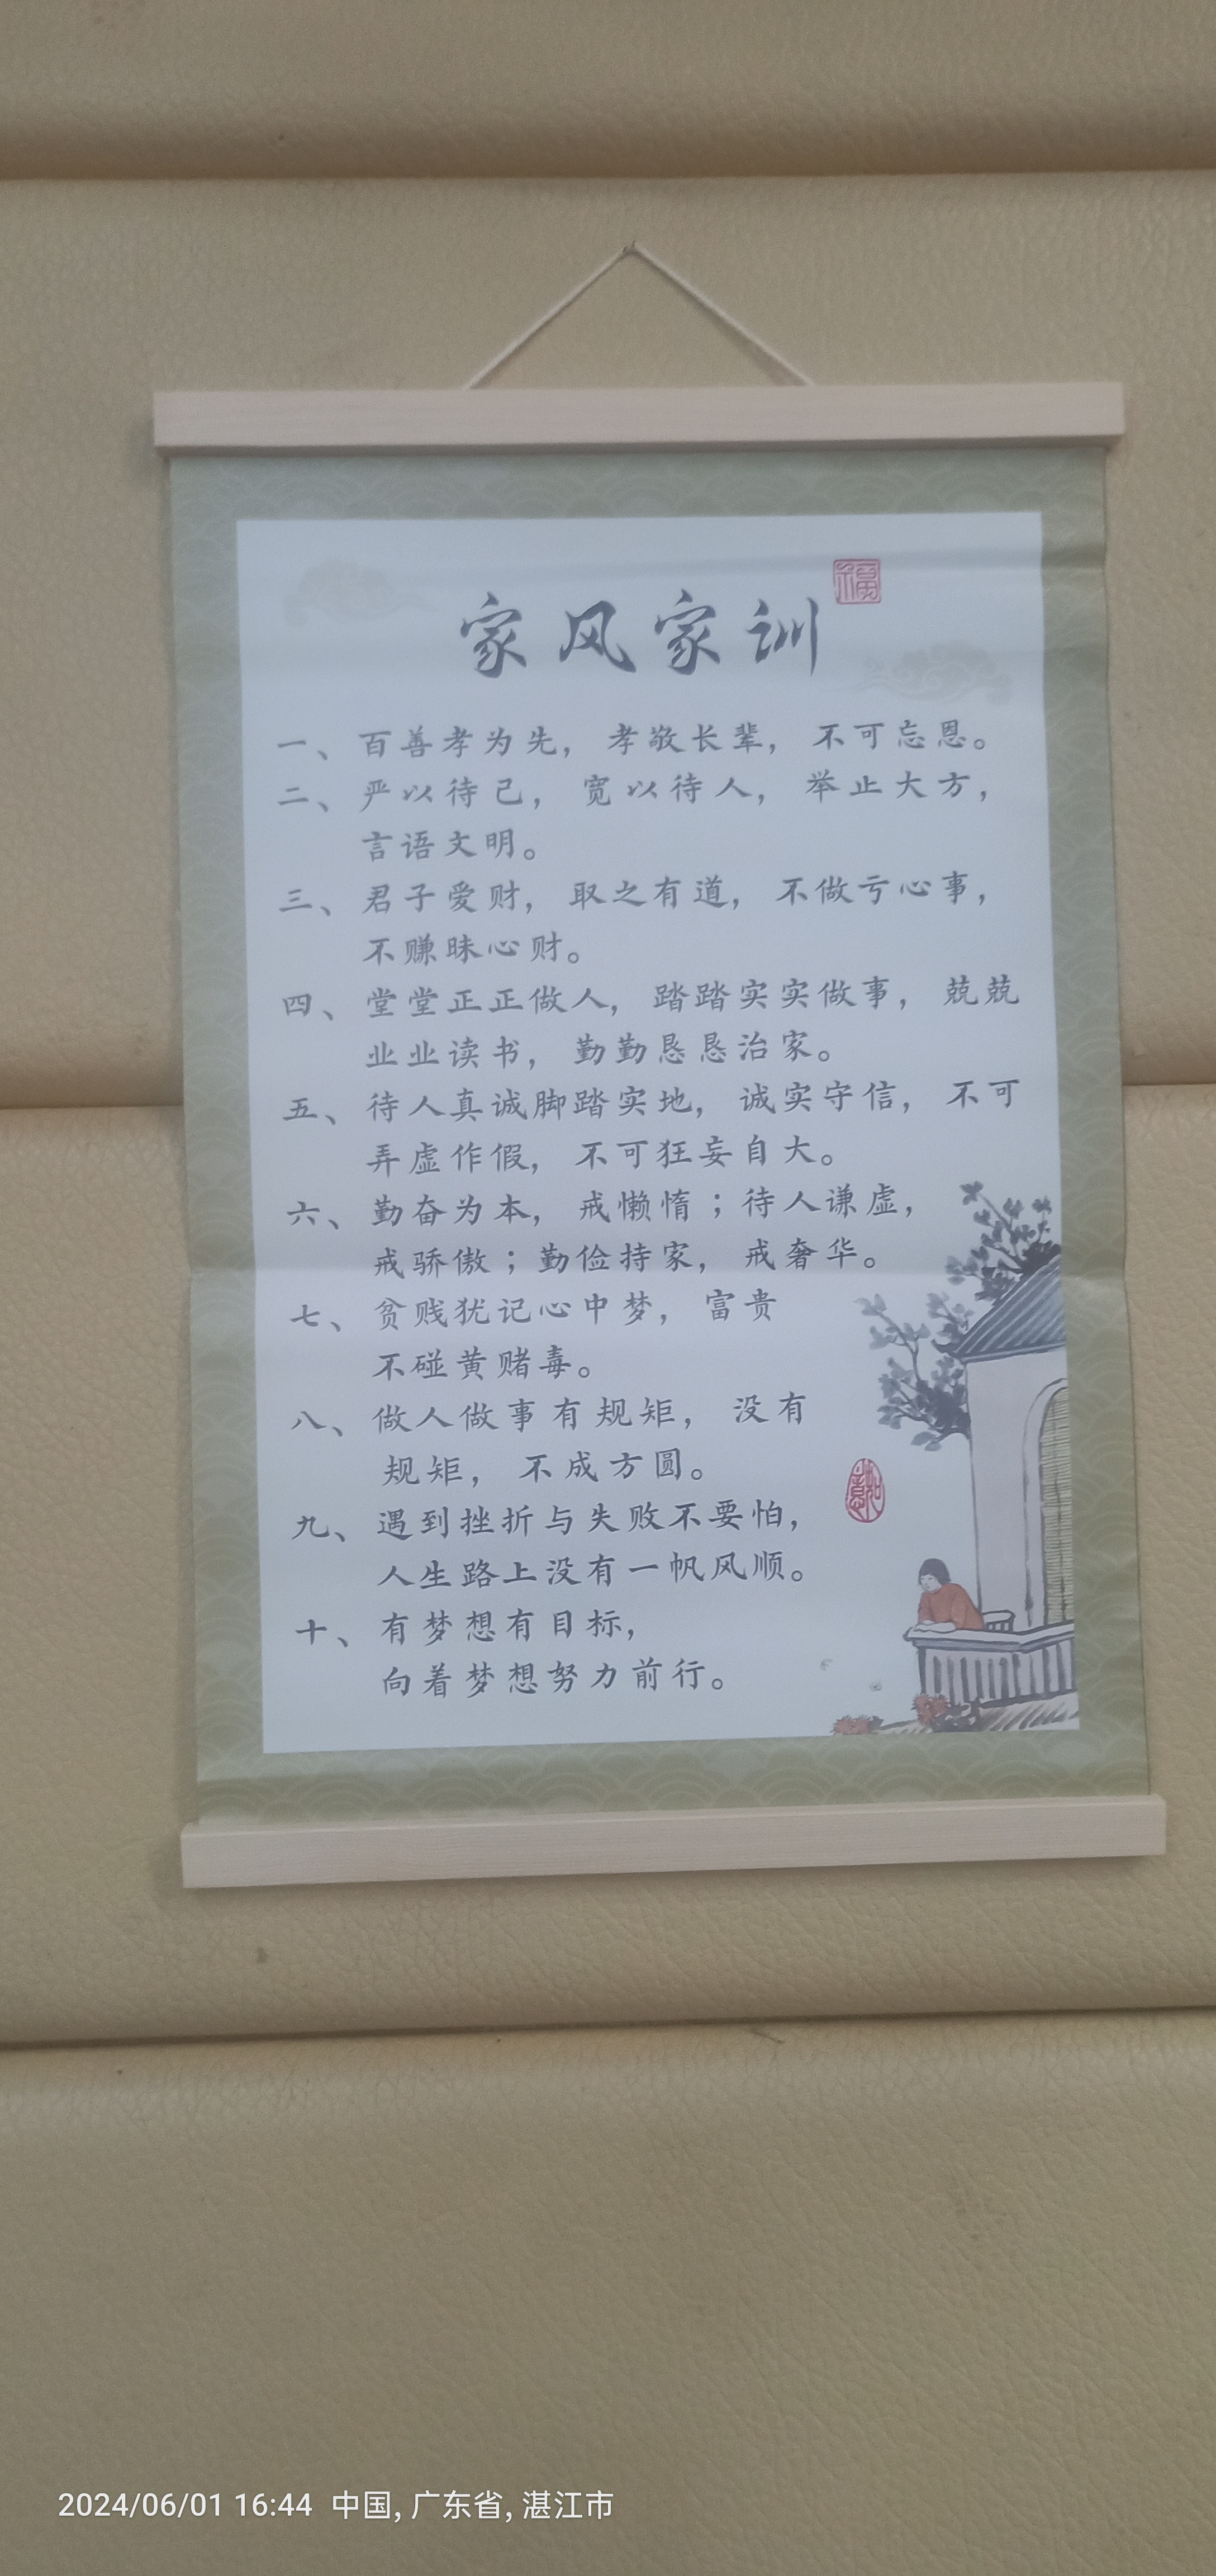 家风家训
福
一、百善孝为先，孝敬长辈，不可忘恩。
二、严以待己，宽以待人，举止大方，
言语文明。
三、君子爱财，取之有道，不做亏心事，
不赚昧心财。
四、堂堂正正做人，踏踏实实做事，兢兢
业业读书，勤勤恳恳治家。
五、待人真诚脚踏实地，诚实守信，不可
弄虚作假，不可狂妄自大。
六、勤奋为本，戒懒惰；待人谦虚，
戒骄傲；勤俭持家，戒奢华。
七、贫贱犹记心中梦，富贵
不碰黄赌毒。
八、做人做事有规矩，没有
规矩，不成方圆。
九、遇到挫折与失败不要怕，
人生路上没有一帆风顺。
十、有梦想有目标，
向着梦想努力前行。
如意
2024/06/01 16:44 中国, 广东省, 湛江市